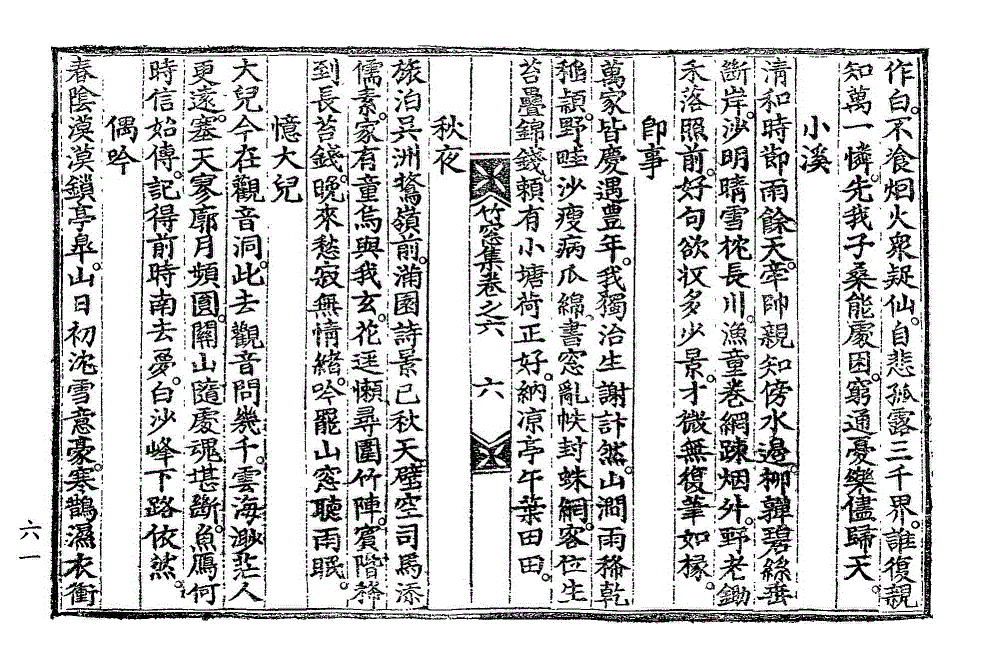 作白。不飡烟火衆疑仙。自悲孤露三千界。誰復親
知萬一憐。先我子桑能處困。窮通憂樂儘歸天。
小溪
淸和時節雨餘天。宰帥親知傍水邊。柳嚲碧絲垂
斷岸。沙明晴雪枕長川。漁童卷網疎烟外。野老鋤
禾落照前。好句欲收多少景。才微無復筆如椽。
卽事
萬家皆慶遇豊年。我獨治生謝計然。山澗雨稀乾
稻頴。野畦沙瘦病瓜綿。書窓亂帙封蛛網。客位生
苔疊錦錢。賴有小塘荷正好。納凉亭午葉田田。
竹窓集卷之六 六
秋夜
旅泊吳洲鷲嶺前。滿園詩景已秋天。壁空司馬添
儒素。家有童烏與我玄。花逕懶尋圍竹陣。賓階稀
到長苔錢。晩來愁寂無情緖。吟罷山窓聽雨眠。
憶大兒
大兒今在觀音洞。此去觀音問幾千。雲海渺茫人
更遠。塞天寥廓月頻圓。關山隨處魂堪斷。魚鴈何
時信始傳。記得前時南去夢。白沙峰下路依然。
偶吟
春陰漠漠鎖亭皐。山日初沈雪意豪。寒鵲濕衣衝
六一